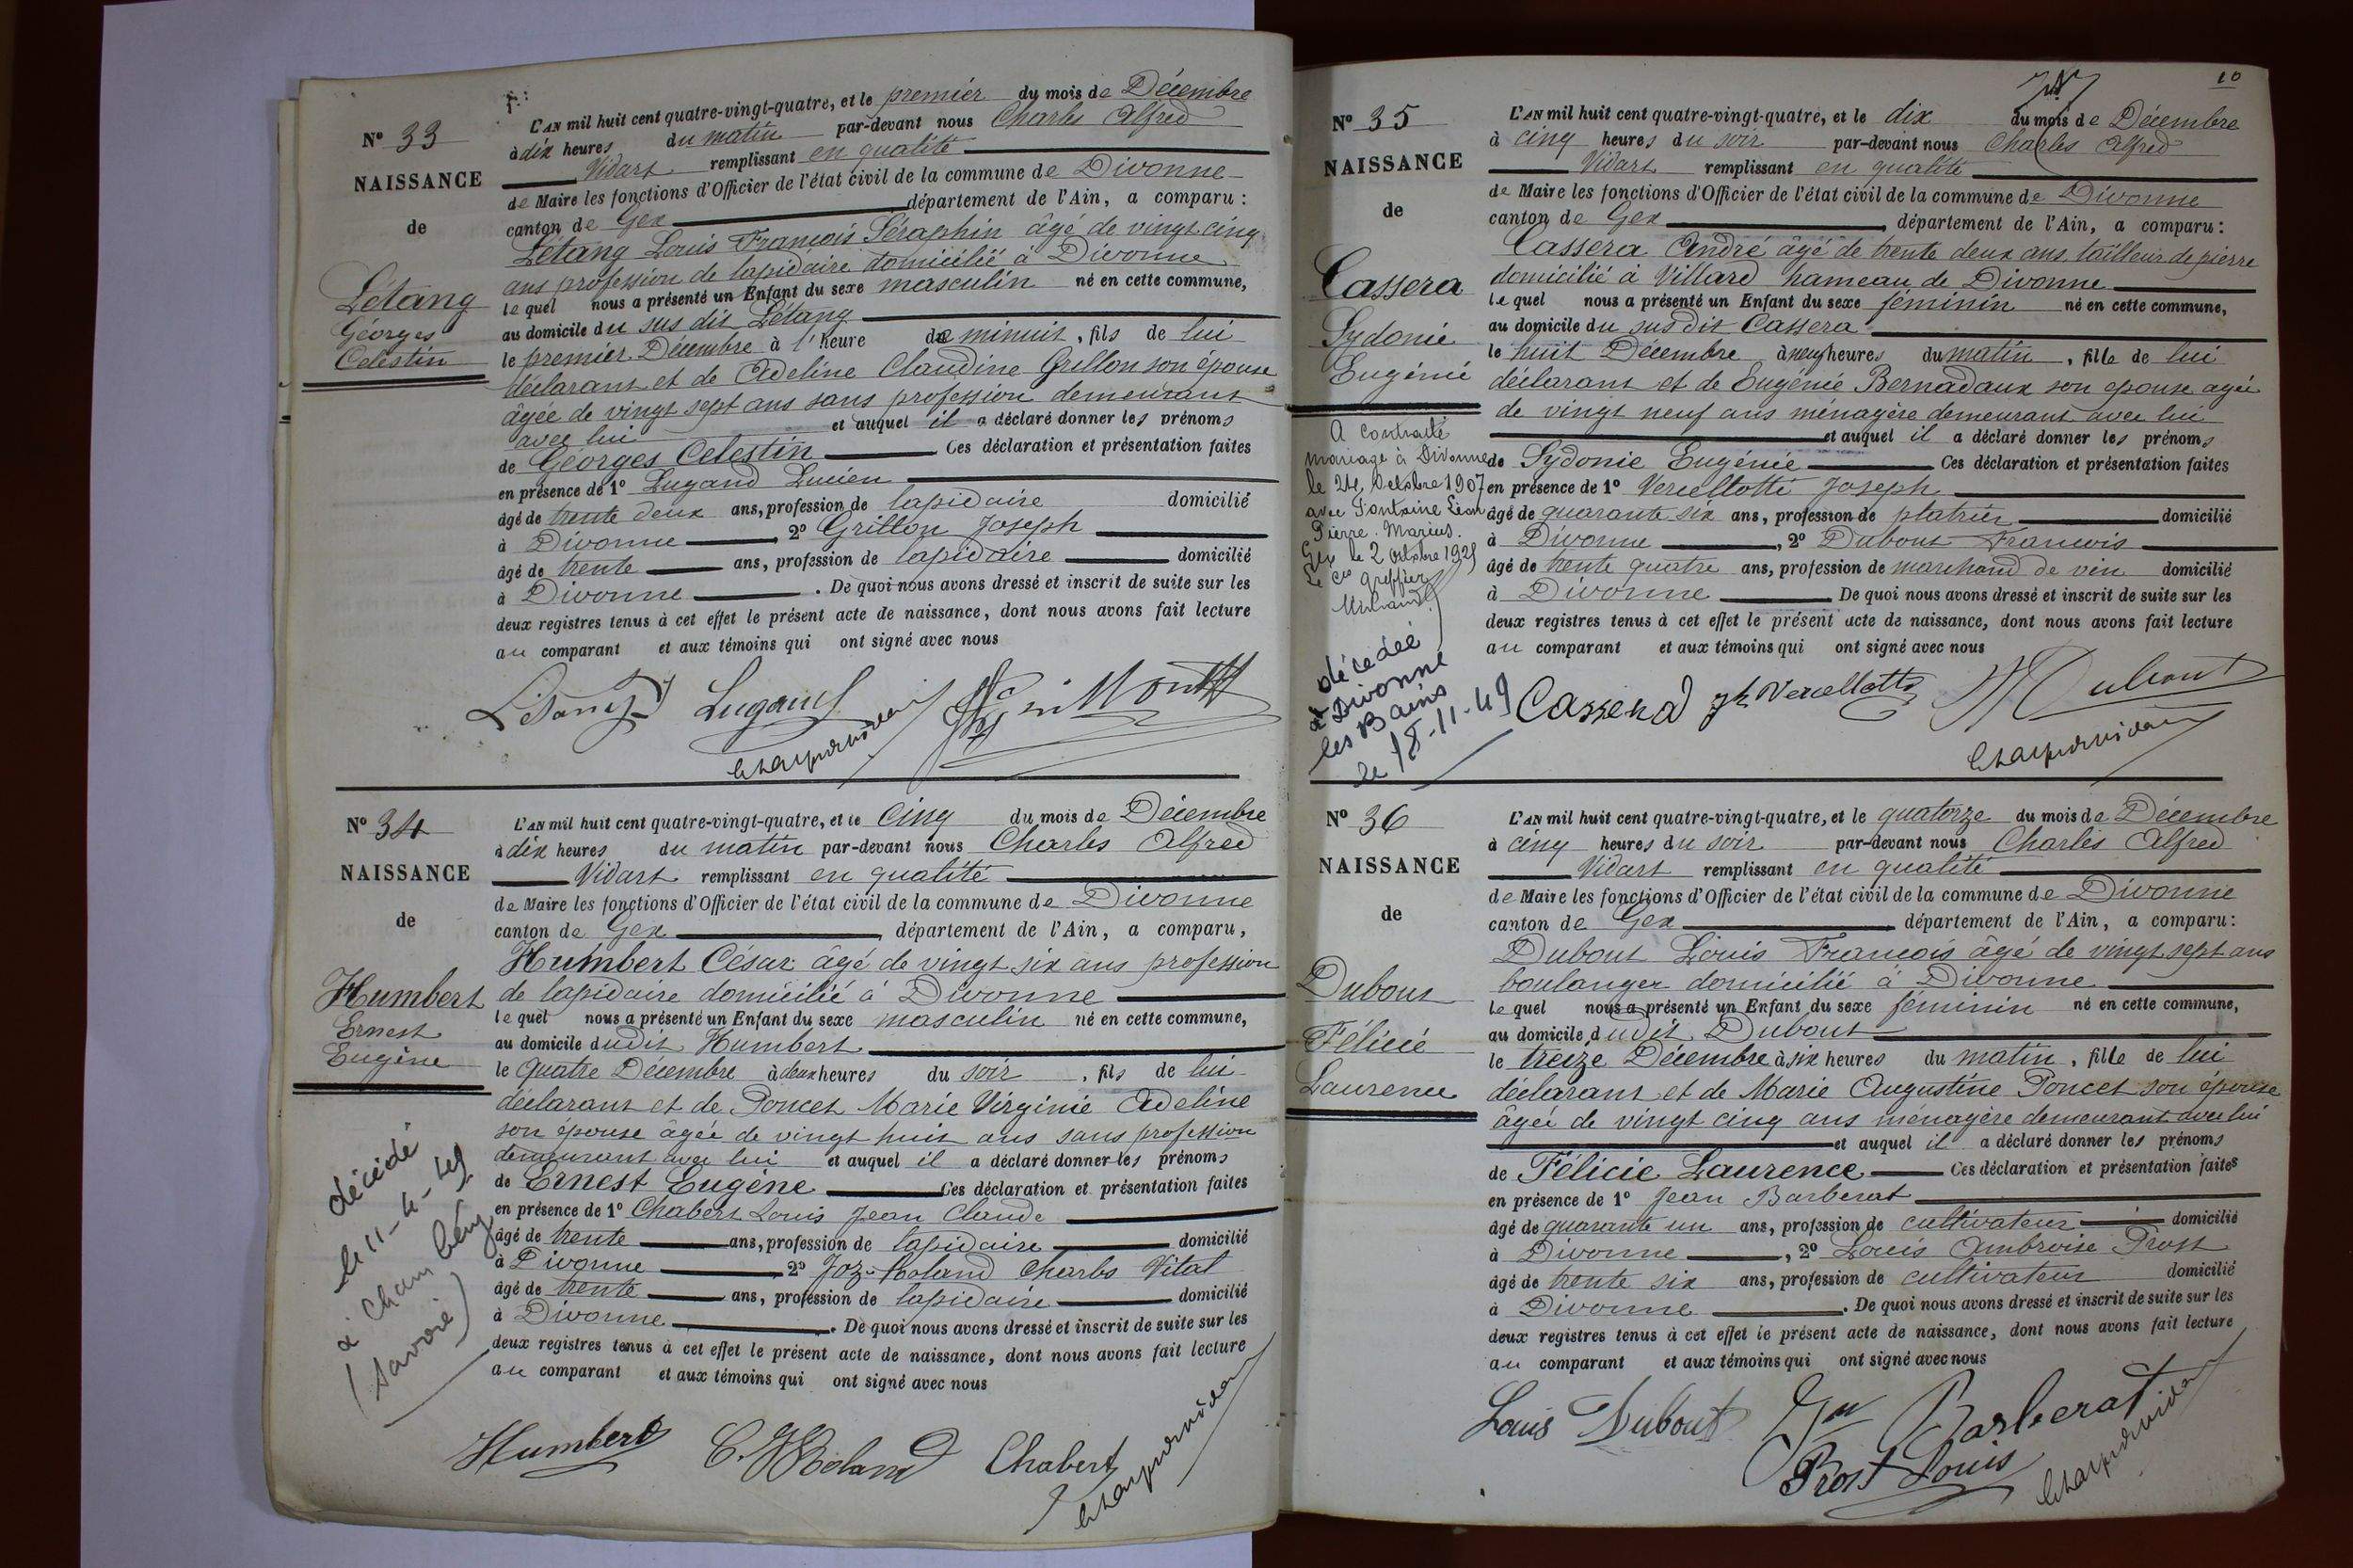 N° 33
NAISSANCE
de
Létang
Géorges
Celestin
L'AN mil huit cent quatre-vingt-quatre, et le premier du mois de Décembre
à dix heures du matin par-devant nous Charles Alfred
Vidart remplissant en qualité
de Maire les fonctions d'Officier de l'état civil de la commune de Divonne
canton de Gex département de l'Ain, a comparu :
Létang Louis François Séraphin âgé de vingt cinq
ans profession de lapidaire domicilié à Divonne
le quel nous a présenté un Enfant du sexe masculin né en cette commune,
au domicile du sus dit Létang
le premier Décembre à l'heure de minuit, fils de lui
déclarant et de Adeline Claudine Grillon son épouse
âgée de vingt sept ans sans profession demeurant
avec lui et auquel il a déclaré donner les prénoms
de Géorges Celestin Ces déclaration et présentation faites
en présence de 1° Lugand Lucien
âgé de trente deux ans, profession de lapidaire domicilié
à Divonne , 2° Grillon Joseph
âgé de trente ans, profession de lapidaire domicilié
à Divonne . De quoi nous avons dressé et inscrit de suite sur les
deux registres tenus à cet effet le présent acte de naissance, dont nous avons fait lecture
au comparant et aux témoins qui ont signé avec nous
Létang Lugand
N° 34
NAISSANCE
de
Humbert
Ernest
Eugène
décédé
le 11-4-49
à Chambéry
(Savoie)
L'AN mil huit cent quatre-vingt-quatre, et le cinq du mois de Décembre
à dix heures du matin par-devant nous Charles Alfred
Vidart remplissant en qualité
de Maire les fonctions d'Officier de l'état civil de la commune de Divonne
canton de Gex , département de l'Ain, a comparu,
Humbert César âgé de vingt six ans profession
de lapidaire domicilié à Divonne
le quel nous a présenté un Enfant du sexe masculin né en cette commune,
au domicile dudit Humbert
le Quatre Décembre à deux heures du soir , fils de lui
déclarant et de Poncet Marie Virginie Adeline
son épouse âgée de vingt huit ans sans profession
demeurant avec lui et auquel il a déclaré donner les prénoms
de Ernest Eugène Ces déclaration et présentation faites
en présence de 1° Chabert Louis Jean Claude
âgé de trente ans, profession de lapidaire domicilié
à Divonne 2° Joz-Roland Charles Vital
âgé de trente ans, profession de lapidaire domicilié
à Divonne . De quoi nous avons dressé et inscrit de suite sur les
deux registres tenus à cet effet le présent acte de naissance, dont nous avons fait lecture
au comparant et aux témoins qui ont signé avec nous
Humbert C. JRoland Chabert
10
N° 35
NAISSANCE
de
Cassera
Sydonie
Eugénie
A contracté
mariage à Divonne
le 24 Octobre 1907
avec Fontaine Léon
Pierre. Marius.
Gex le 2 Octobre 1925
Le Cis Greffier
décédée
à Divonne
les Bains
le 18-11-49
L'AN mil huit cent quatre-vingt-quatre, et le dix du mois de Décembre
à cinq heures du soir par-devant nous Charles Alfred
Vidart remplissant en qualité
de Maire les fonctions d'Officier de l'état civil de la commune de Divonne
canton de Gex , département de l'Ain, a comparu:
Cassera André âgé de trente deux ans tailleur de pierre
domicilié à Villard hameau de Divonne
le quel nous a présenté un Enfant du sexe féminin né en cette commune,
au domicile du sus dit Cassera
le huit Décembre à neuf heures du matin , fille de lui
déclarant et de Eugénie Bernadaux son epouse agée
de vingt neuf ans ménagère demeurant avec lui
et auquel il a déclaré donner les prénoms
de Sydonie Eugénie Ces déclaration et présentation faites
en présence de 1° Vercellotti Joseph
âgé de quarante six ans, profession de platrier domicilié
à Divonne , 2° Dubout Francois
âgé de trente quatre ans, profession de marchand de vin domicilié
à Divonne De quoi nous avons dressé et inscrit de suite sur les
deux registres tenus à cet effet le présent acte de naissance, dont nous avons fait lecture
au comparant et aux témoins qui ont signé avec nous
Cassera Jh Vercellotti Dubout
N° 36
NAISSANCE
de
Dubout
Félicie
Laurence
L'AN mil huit cent quatre-vingt-quatre, et le quatorze du mois de Décembre
à cinq heures du soir par-devant nous Charles Alfred
Vidart remplissant en qualité
de Maire les fonctions d'Officier de l'état civil de la commune de Divonne
canton de Gex département de l'Ain, a comparu:
Dubout Louis Francois âgé de vingt sept ans
boulanger domicilié à Divonne
le quel nous a présenté un Enfant du sexe féminin né en cette commune,
au domicile dudit Dubout
le treize Décembre à six heures du matin, fille de lui
déclarant et de Marie Augustine Poncet son épouse
âgée de vingt cinq ans ménagère demeurant avec lui
et auquel il a déclaré donner les prénoms
de Félicie Laurence Ces déclaration et présentation faites
en présence de 1° Jean Barberat
âgé de quarante un ans, profession de cultivateur domicilié
à Divonne , 2° Louis Ambroise Prost
âgé de trente six ans, profession de cultivateur domicilié
à Divonne . De quoi nous avons dressé et inscrit de suite sur les
deux registres tenus à cet effet le présent acte de naissance, dont nous avons fait lecture
au comparant et aux témoins qui ont signé avec nous
Louis Dubout Barberat
Prost Louis